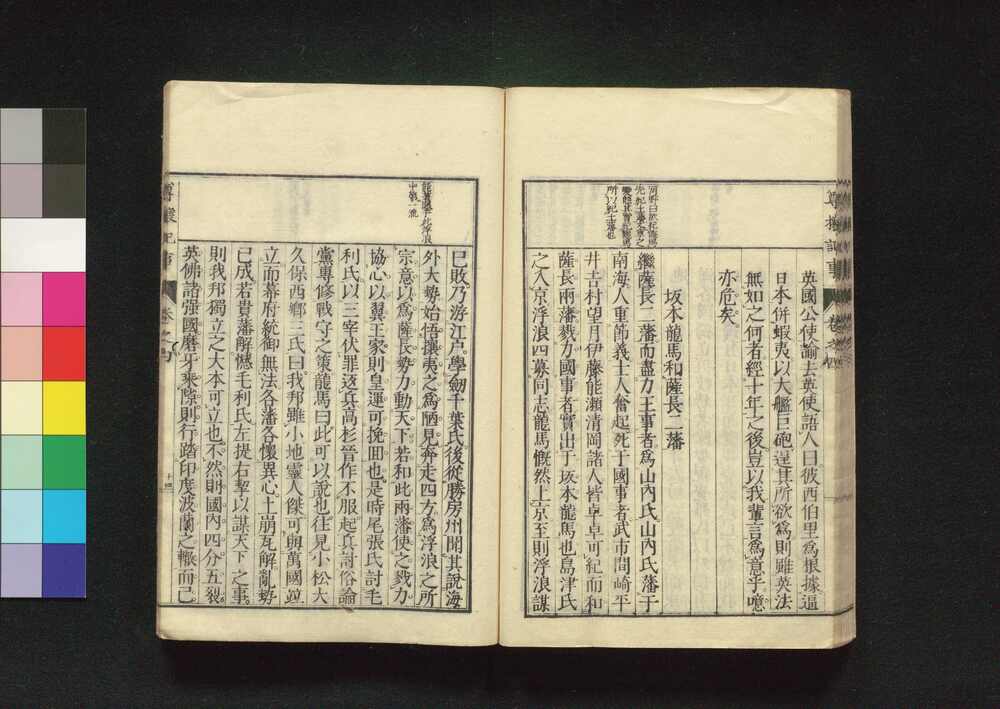 英國公使諭去英使語人曰彼西伯里爲根據逼
日本併蝦夷以大艦巨砲逞其所欲爲則雖英法
無如之何者經十年之後豈以我輩言爲意乎噫
亦危矣
坂本龍馬和薩長二藩
繼薩長二藩而盡力王事者爲山內氏山內氏藩于
南海人重節義士人奮起死于國事者武市間崎平
井吉村望月伊藤能瀨清岡諸人皆卓卓可紀而和
薩長兩藩戮力國事者實出于坂本龍馬也島津氏
之入京浮浪四募同志龍馬慨然上京至則浮浪謀
已敗乃游江戶學劒千葉氏後從勝房州聞其說海
外大勢始悟攘夷之爲陋見奔走四方爲浮浪之所
宗意以爲薩長勢力動天下若和此兩藩使之戮力
協心以翼王家則皇運可挽回也是時尾張氏討毛
利氏以三宰伏罪返兵高杉晉作不服起兵討俗論
黨專修戰守之策龍馬曰此可以說也往見小松大
久保西鄉三氏曰我邦雖小地靈人傑可與萬國竝
立而幕府統御無法各藩各懷異心土崩瓦解亂勢
已成若貴藩解憾毛利氏左提右挈以謀天下之事
則我邦獨立之大本可立也不然則國內四分五裂
英佛諸强國磨牙乘隙則行踏印度波蘭之轍而已
尊攘紀事
卷之四
十四